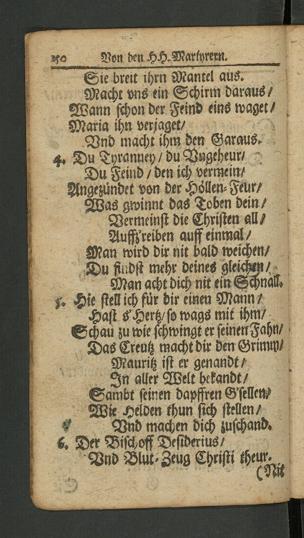 250 Von den HH. Martyrern.
Sie breit ihrn Mantel aus.
Macht vns ein Schirm daraus /
Wann schon der Feind eins waget /
Maria ihn verjaget /
Vnd macht ihm den Garaus.
4. Du Tyranney / du Vngeheur /
Du Feind / den ich vermein /
Angezündet von der Höllen-Feur /
Was gwinnt das Toben dein /
Vermeinst die Christen all /
Auffz'reiben auff einmal /
Man wird dir nit bald weichen /
Du findst mehr deines gleichen /
Man acht dich nit ein Schnall.
5. Hie stell ich für dir einen Mann /
Hast s'Hertz / so wags mit ihm /
Schau zu wie schwingt er seinen Fahn /
Das Creutz macht dir den Grimm /
Mauritz ist er genandt /
In aller Welt bekandt /
Sambt seinen dapffren G'sellen /
Wie Helden thun sich stellen /
Vnd machen dich zuschand.
6. Der Bischoff Desiderius /
Vnd Blut-Zeug Christi theur.
(Nit